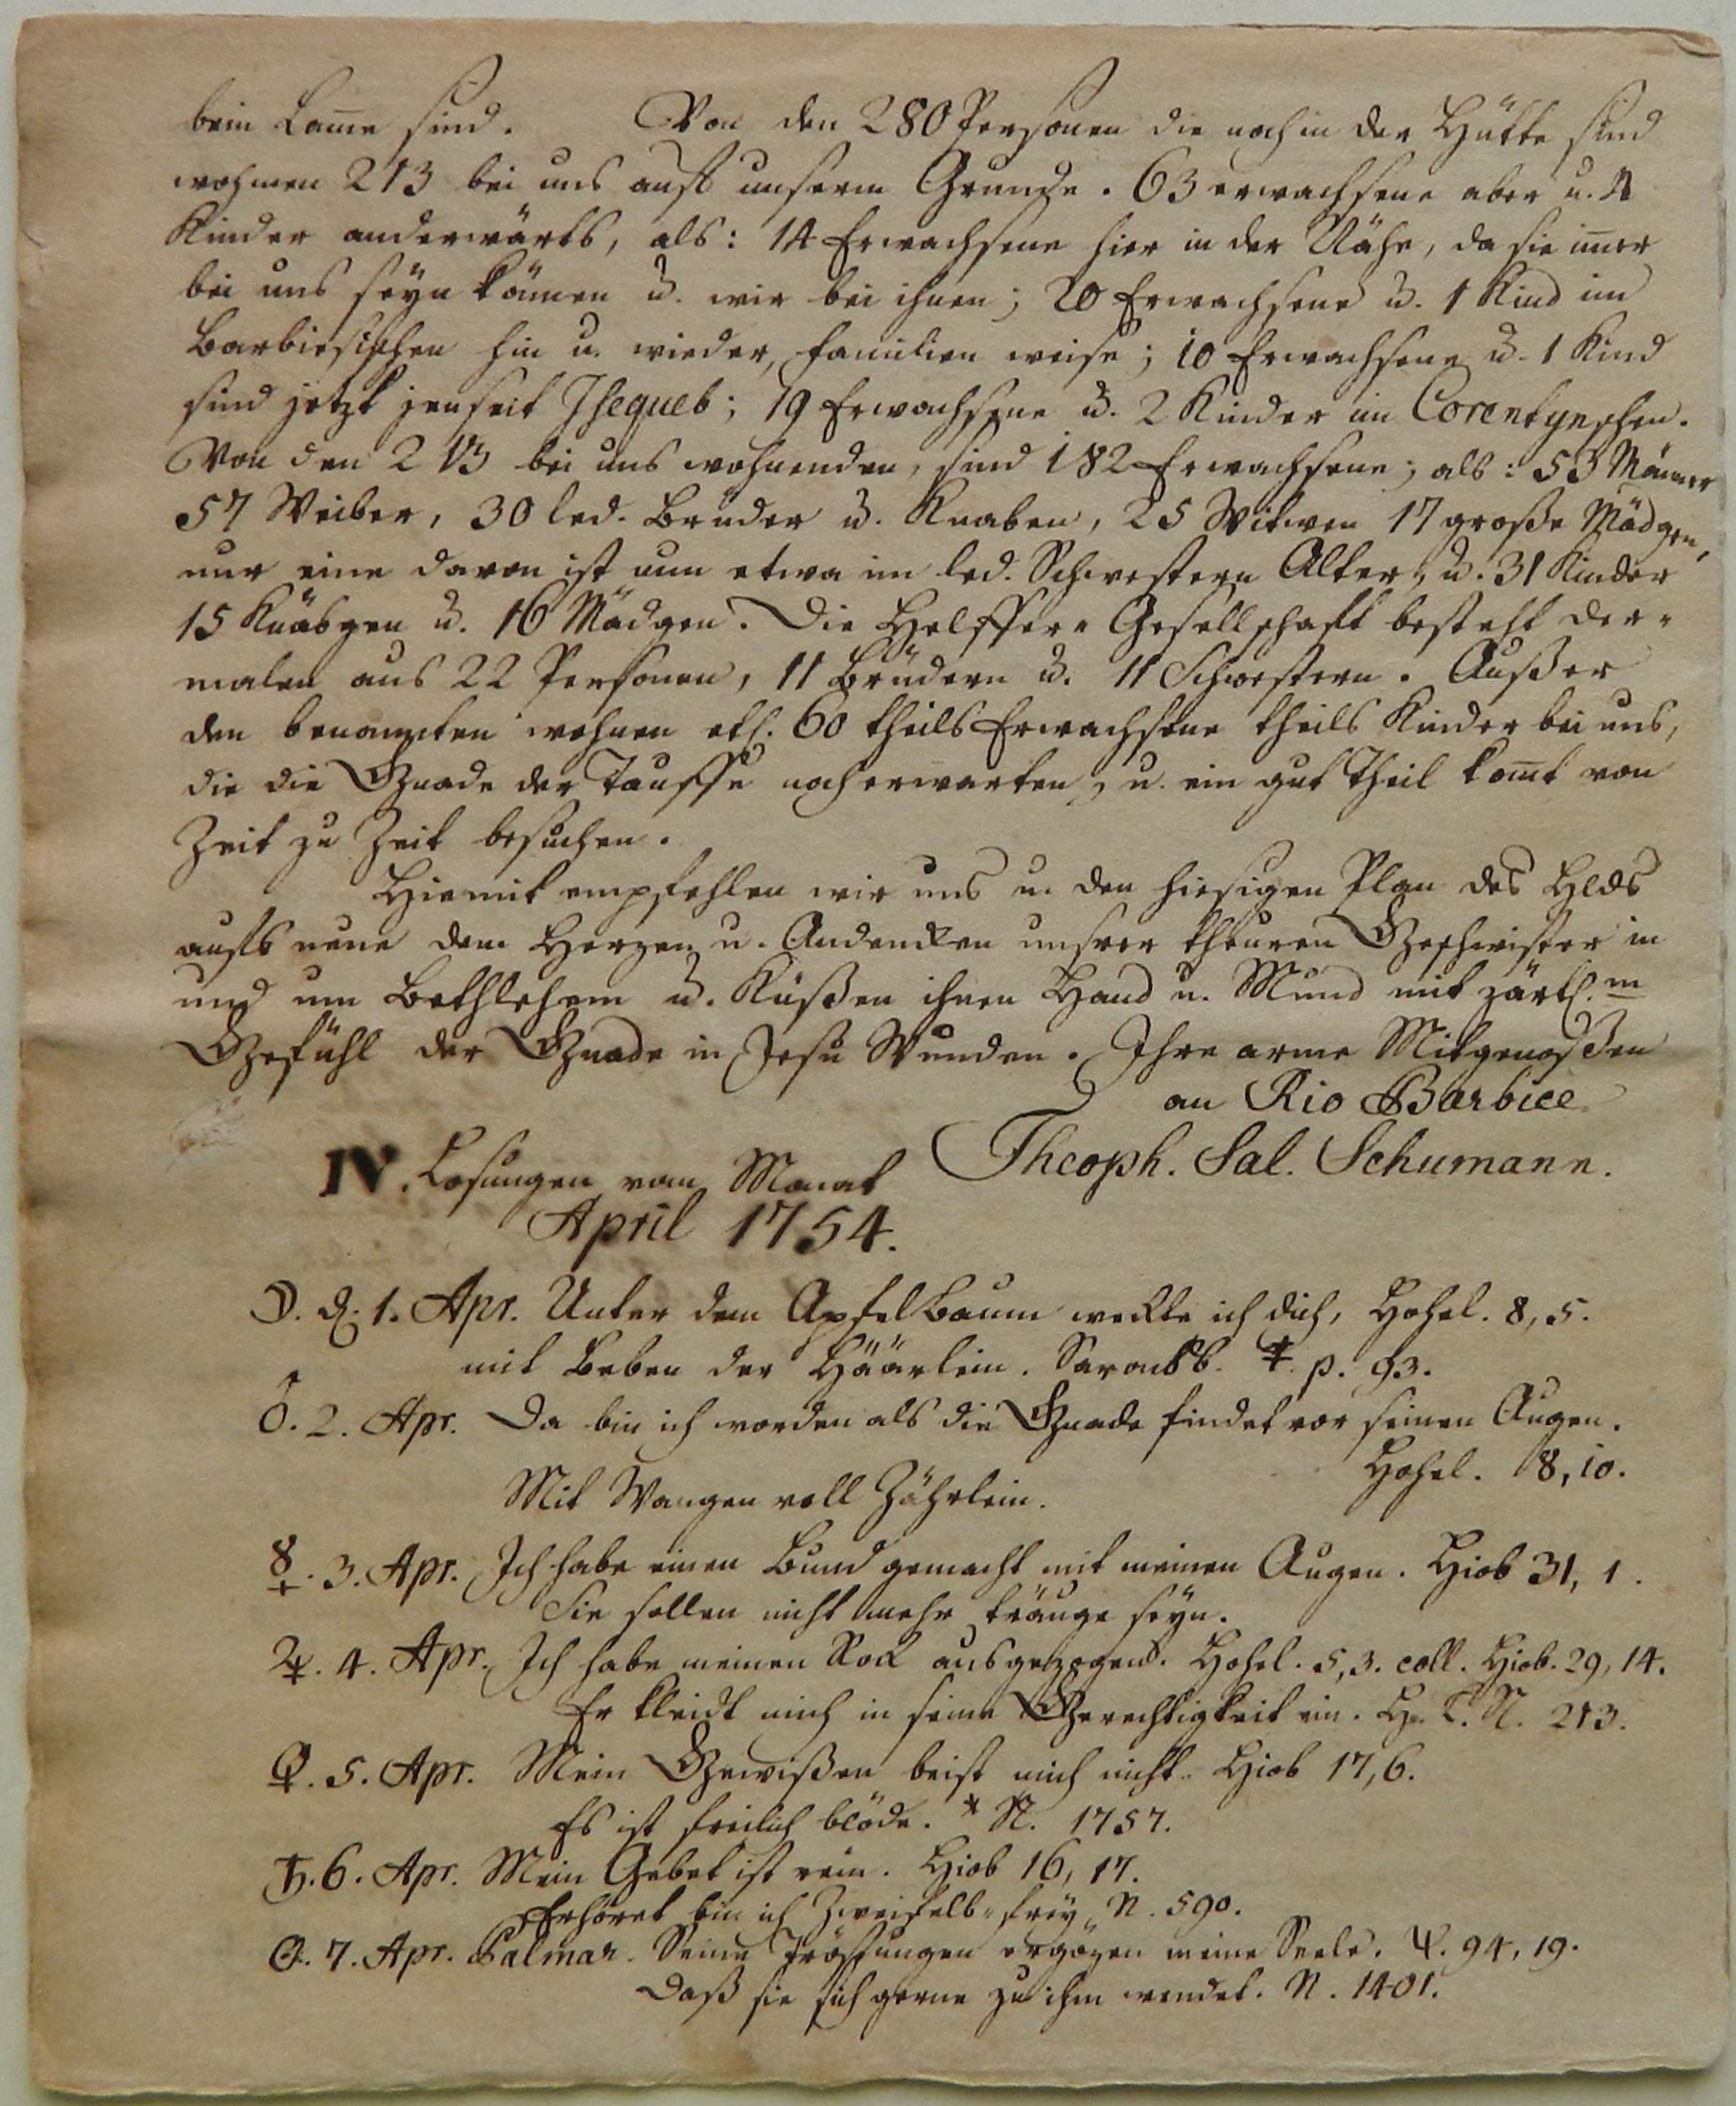 beim Lam̅e sind. Von den 280 Personen die noch in der Hütte sind
wohnen 213 bei uns auff unserm Grunde. 63 erwachsene aber u. 4
Kinder anderwärts, als: 14 Erwachsene hier in der Nähe, da sie im̅er
bei uns seyn können u. wir bei ihnen; 20 Erwachsene u. 1 Kind im
Barbicischen hin u. wieder, familien weise; 10 Erwachsene u. 1 Kind
sind jetzt jenseit Isequeb; 19 Erwachsene u. 2 Kinder im Corentynschen.
Von den 213 bei uns wohnenden, sind 182 Erwachsene; als: 53 Männer
57 Weiber, 30 led. Brüder u. Knaben, 25 Witwen 17 große Mädgen,
nur eine davon ist nun etwa im led. Schwestern Alter, u. 31 Kinder
15 Knäbgen u. 16 Mädgen. Die Helffer-Gesellschaft besteht der-
malen aus 22 Personen, 11 Brüdern u. 11 Schwestern. Außer
den benannten wohnen etl. 60 theils Erwachsene theils Kinder bei uns,
die die Gnade der Tauffe noch erwarten, u. ein gut Theil kom̅t von
Zeit zu Zeit besuchen.
Hiemit empfehlen wir uns u. den hiesigen Plan des Hlds
auffs neue dem Herzen u. Andencken unsrer theuren Geschwister in
und um Bethlehem u. Küßen ihnen Hand u. Mund mit zärtl.m
Gefühl der Gnade in Jesu Wunden. Ihre arme Mitgenoßen
an Rio Barbice
Theoph. Sal. Schumann.
IV. Losungen vom Monat
April 1754.
☽. d. 1. Apr. Unter dem Apfelbaum weckte ich dich, Hohel. 8, 5.
mit Beben der Häärlein. Saronsb. ‡. p. 93.
♂. 2. Apr. Da bin ich worden als die Gnade findet vor seinen Augen.
Hohel. 8, 10.
Mit Wangen voll Zährlein.
☿. 3. Apr. Ich habe einen Bund gemacht mit meinen Augen. Hiob 31, 1.
Sie sollen nicht mehr träuge seyn.
♃. 4. Apr. Ich habe meinen Rock ausgezogen. Hohel. 5, 3. coll. Hiob. 29, 14.
Er kleidt mich in seine Gerechtigkeit ein. N. 213.
♀. 5. Apr. Mein Gewißen beist mich nicht. Hiob 17, 6.
Es ist freilich blöde. * N. 1757.
♄. 6. Apr. Mein Gebet ist rein. Hiob 16, 17.
Erhöret bin ich Zweifels-frey, N. 590.
☉. 7. Apr. Palmar. Seine Tröstungen ergözen meine Seele. Ψ. 94, 19.
Daß sie sich gerne zu ihm wendet. N. 1401.